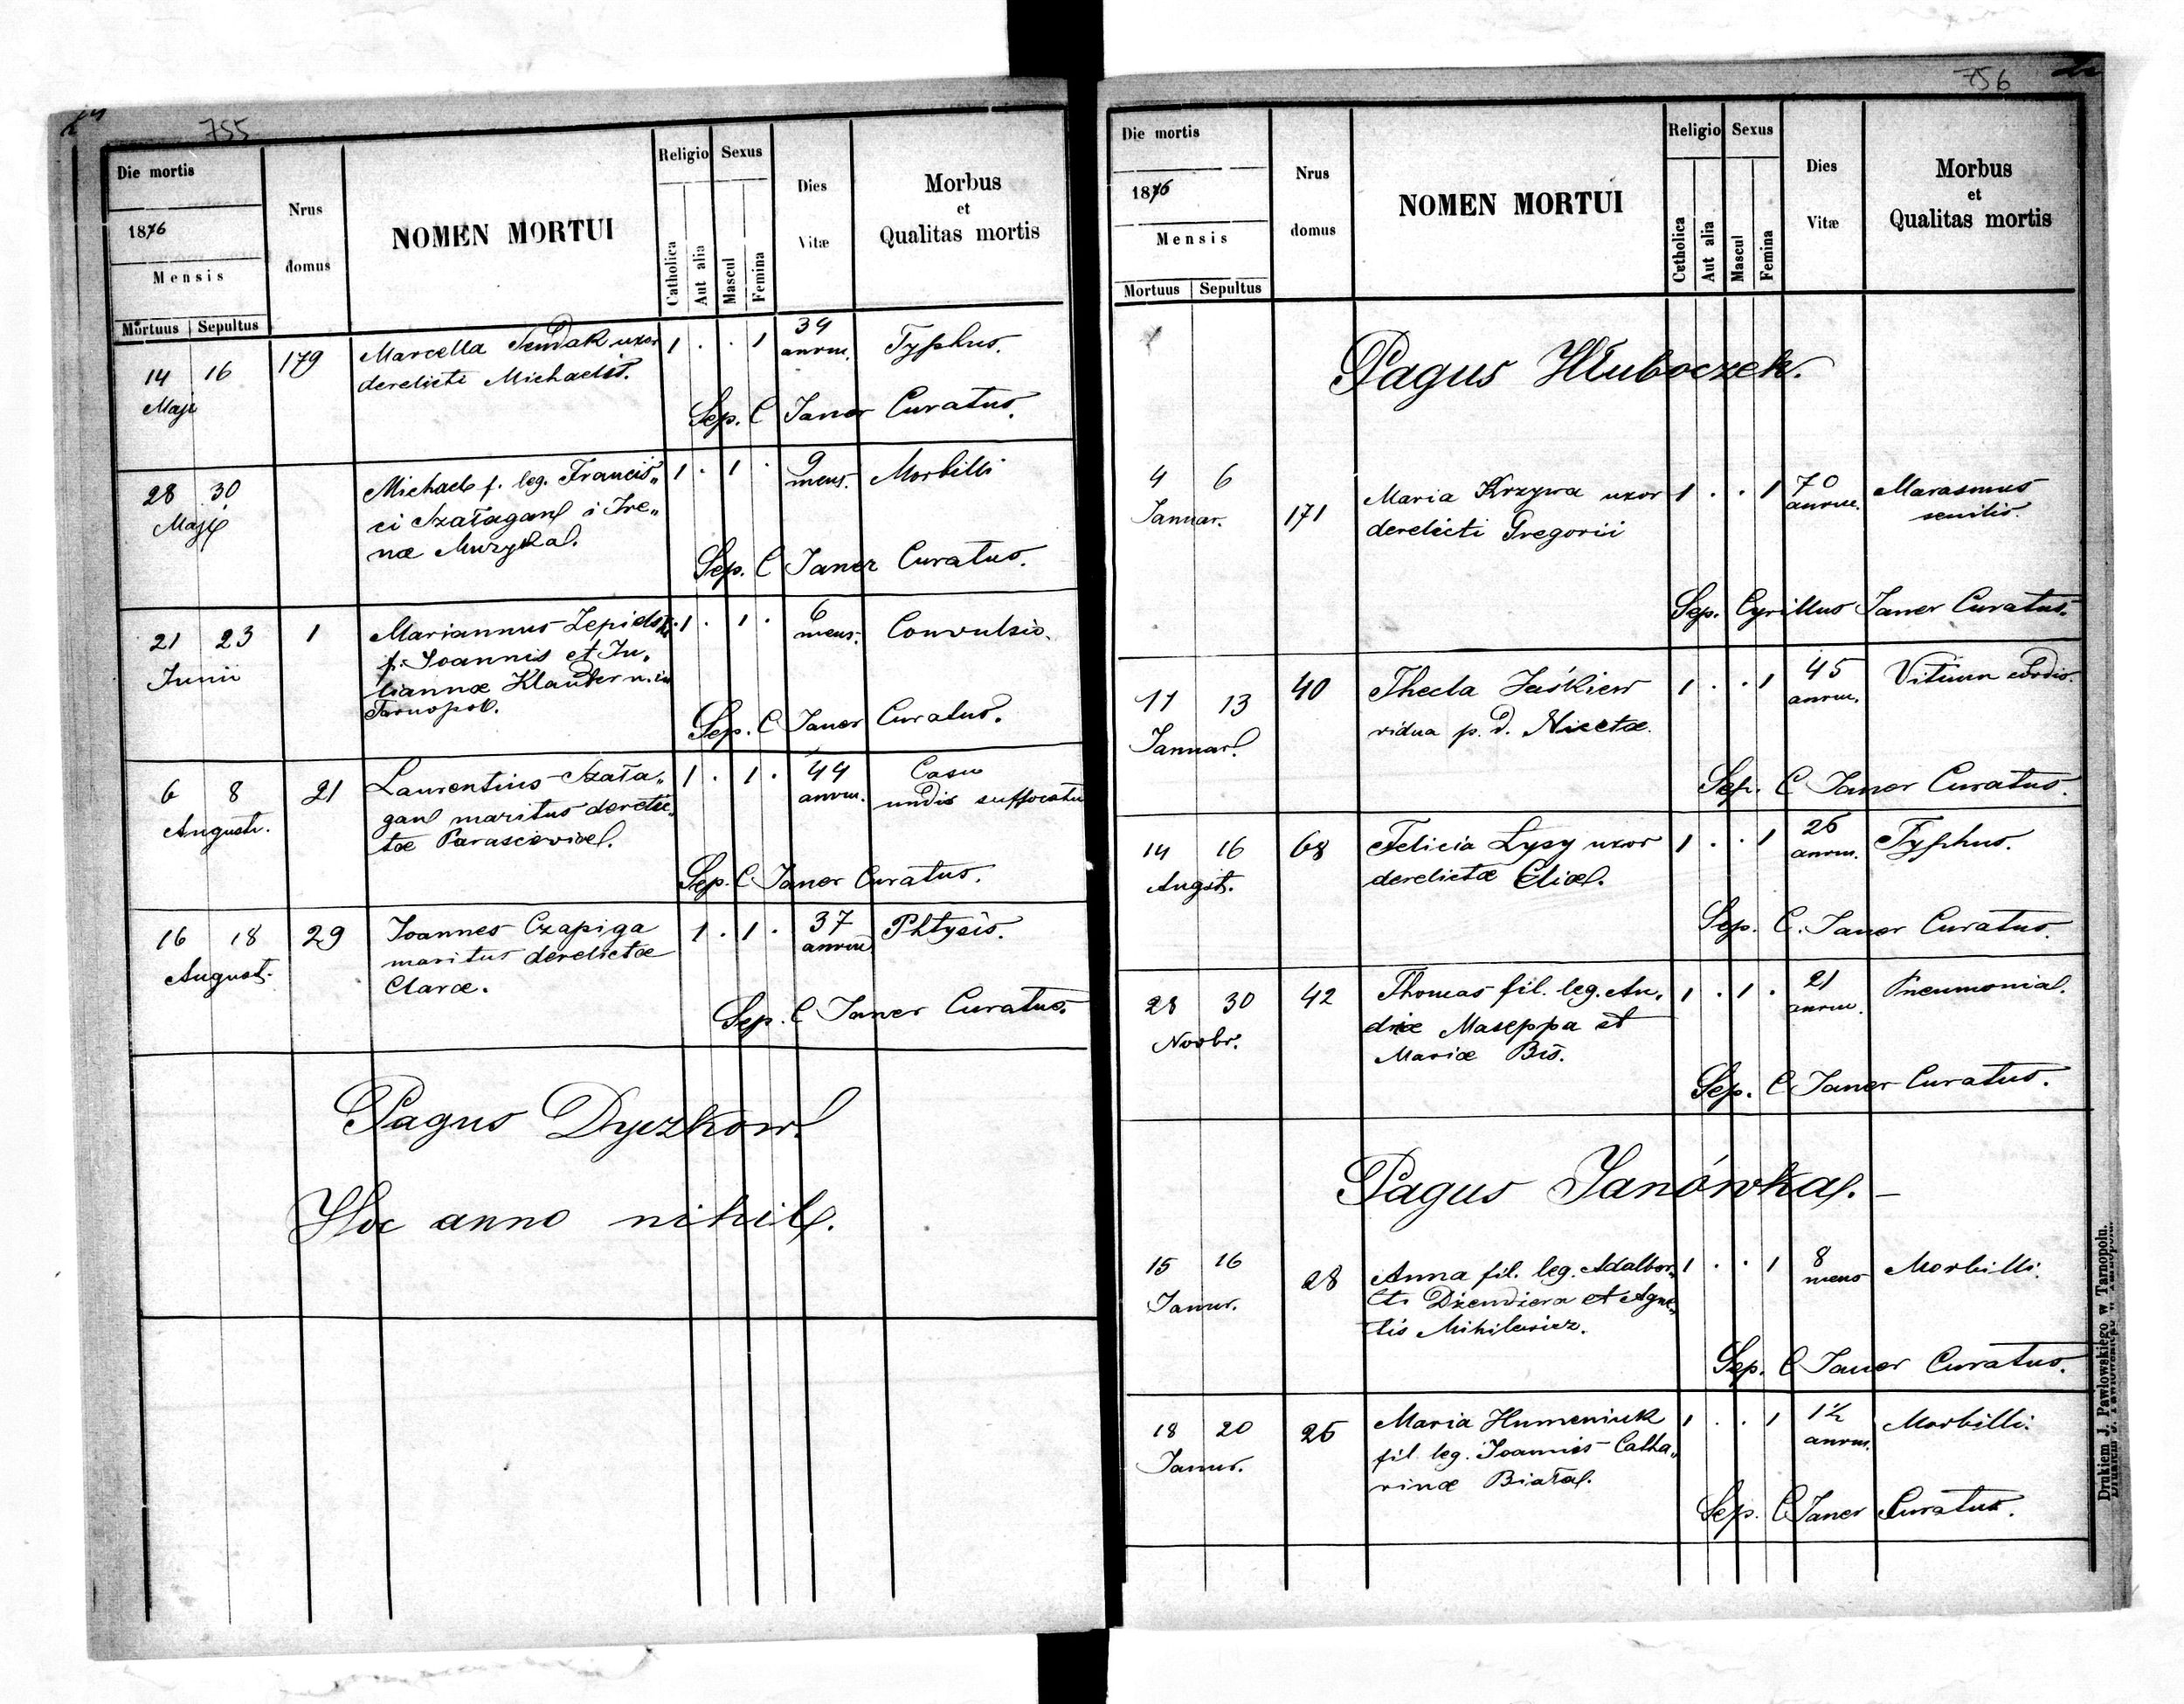 755
Die mortis
1876
Mensis
Mortuus Sepultus
Nrus domus
NOMEN MORTUI
Religio
Catholica
Aut alia
Sexus
Mascul
Femina
Dies Vitæ
Morbus
et
Qualitas mortis
14 16 179 Marcella uxor 1 . . 1 34 Typhus.
Maji derelicti Michaelis. annru.
Sep. C Janer Curatus.
28 30 Michael f. leg. Francis„ 1 . 1 . 9 Morbilli
Maji ci Szałagan i Ire„ mens.
næ Muzyka.
Sep. C Janer Curatus.
21 23 1 Mariannus 1 . 1 . 6 Convulsio.
Junii f. Joannis et Ju„ mens.
liannæ
Tarnopol.
Sep. C Janer Curatus.
6 8 21 Laurentius Szała„ 1 . 1 . 44 Casu
Augusti. gan maritus derelic„ annru. undis suffocatus
tæ Parasceviæ.
Sep. C Janer Curatus.
16 18 29 Joannes Czapiga 1 . 1 . 37 Phtysis.
August. maritus derelictæ annru.
Claræ.
Sep. C Janer Curatus.
Pagus Dyczkow
Hoc anno nihil.
756
Die mortis
1876
Mensis
Mortuus Sepultus
Nrus domus
NOMEN MORTUI
Religio
Catholica
Aut alia
Sexus
Mascul
Femina
Dies Vitæ
Morbus
et
Qualitas mortis
Pagus Hłuboczek.
4 6 171 Maria Krzywa uxor 1 . . 1 70 Marasmus
Januar. derelicti Gregorii annru. senilis.
Sep. Cyrillus Janer Curatus.
11 13 40 Thecla Jaśkiew 1 . . 1 45 Vitium cordis.
Januar. vidua p. d. Nicetæ. annru.
Sep. C Janer Curatus.
14 16 68 Felicia Lysy uxor 1 . . 1 26 Typhus.
August. derelictæ Eliæ. annru.
Sep. C. Janer Curatus.
28 30 42 Thomas fil. leg. An„ 1 . 1 . 21 Pneumonia.
Novbr. driæ Maseppa et annru.
Mariæ Bis.
Sep. C Janer Curatus.
Pagus Janówka. –
15 16 28 Anna fil. leg. Adalber„ 1 . . 1 8 Morbilli.
Janur. ti Dżendżera et Agne„ mens
tis Mihilewicz.
Sep. C Janer Curatus.
18 20 25 Maria Humeniuk 1 . . 1 1½ Morbilli.
Janur. fil. leg. Joannis Catha„ annru.
rinæ Biała.
Sep. C Janer Curatus.
Drukiem J. Pawłowskiego w Tarnopolu.